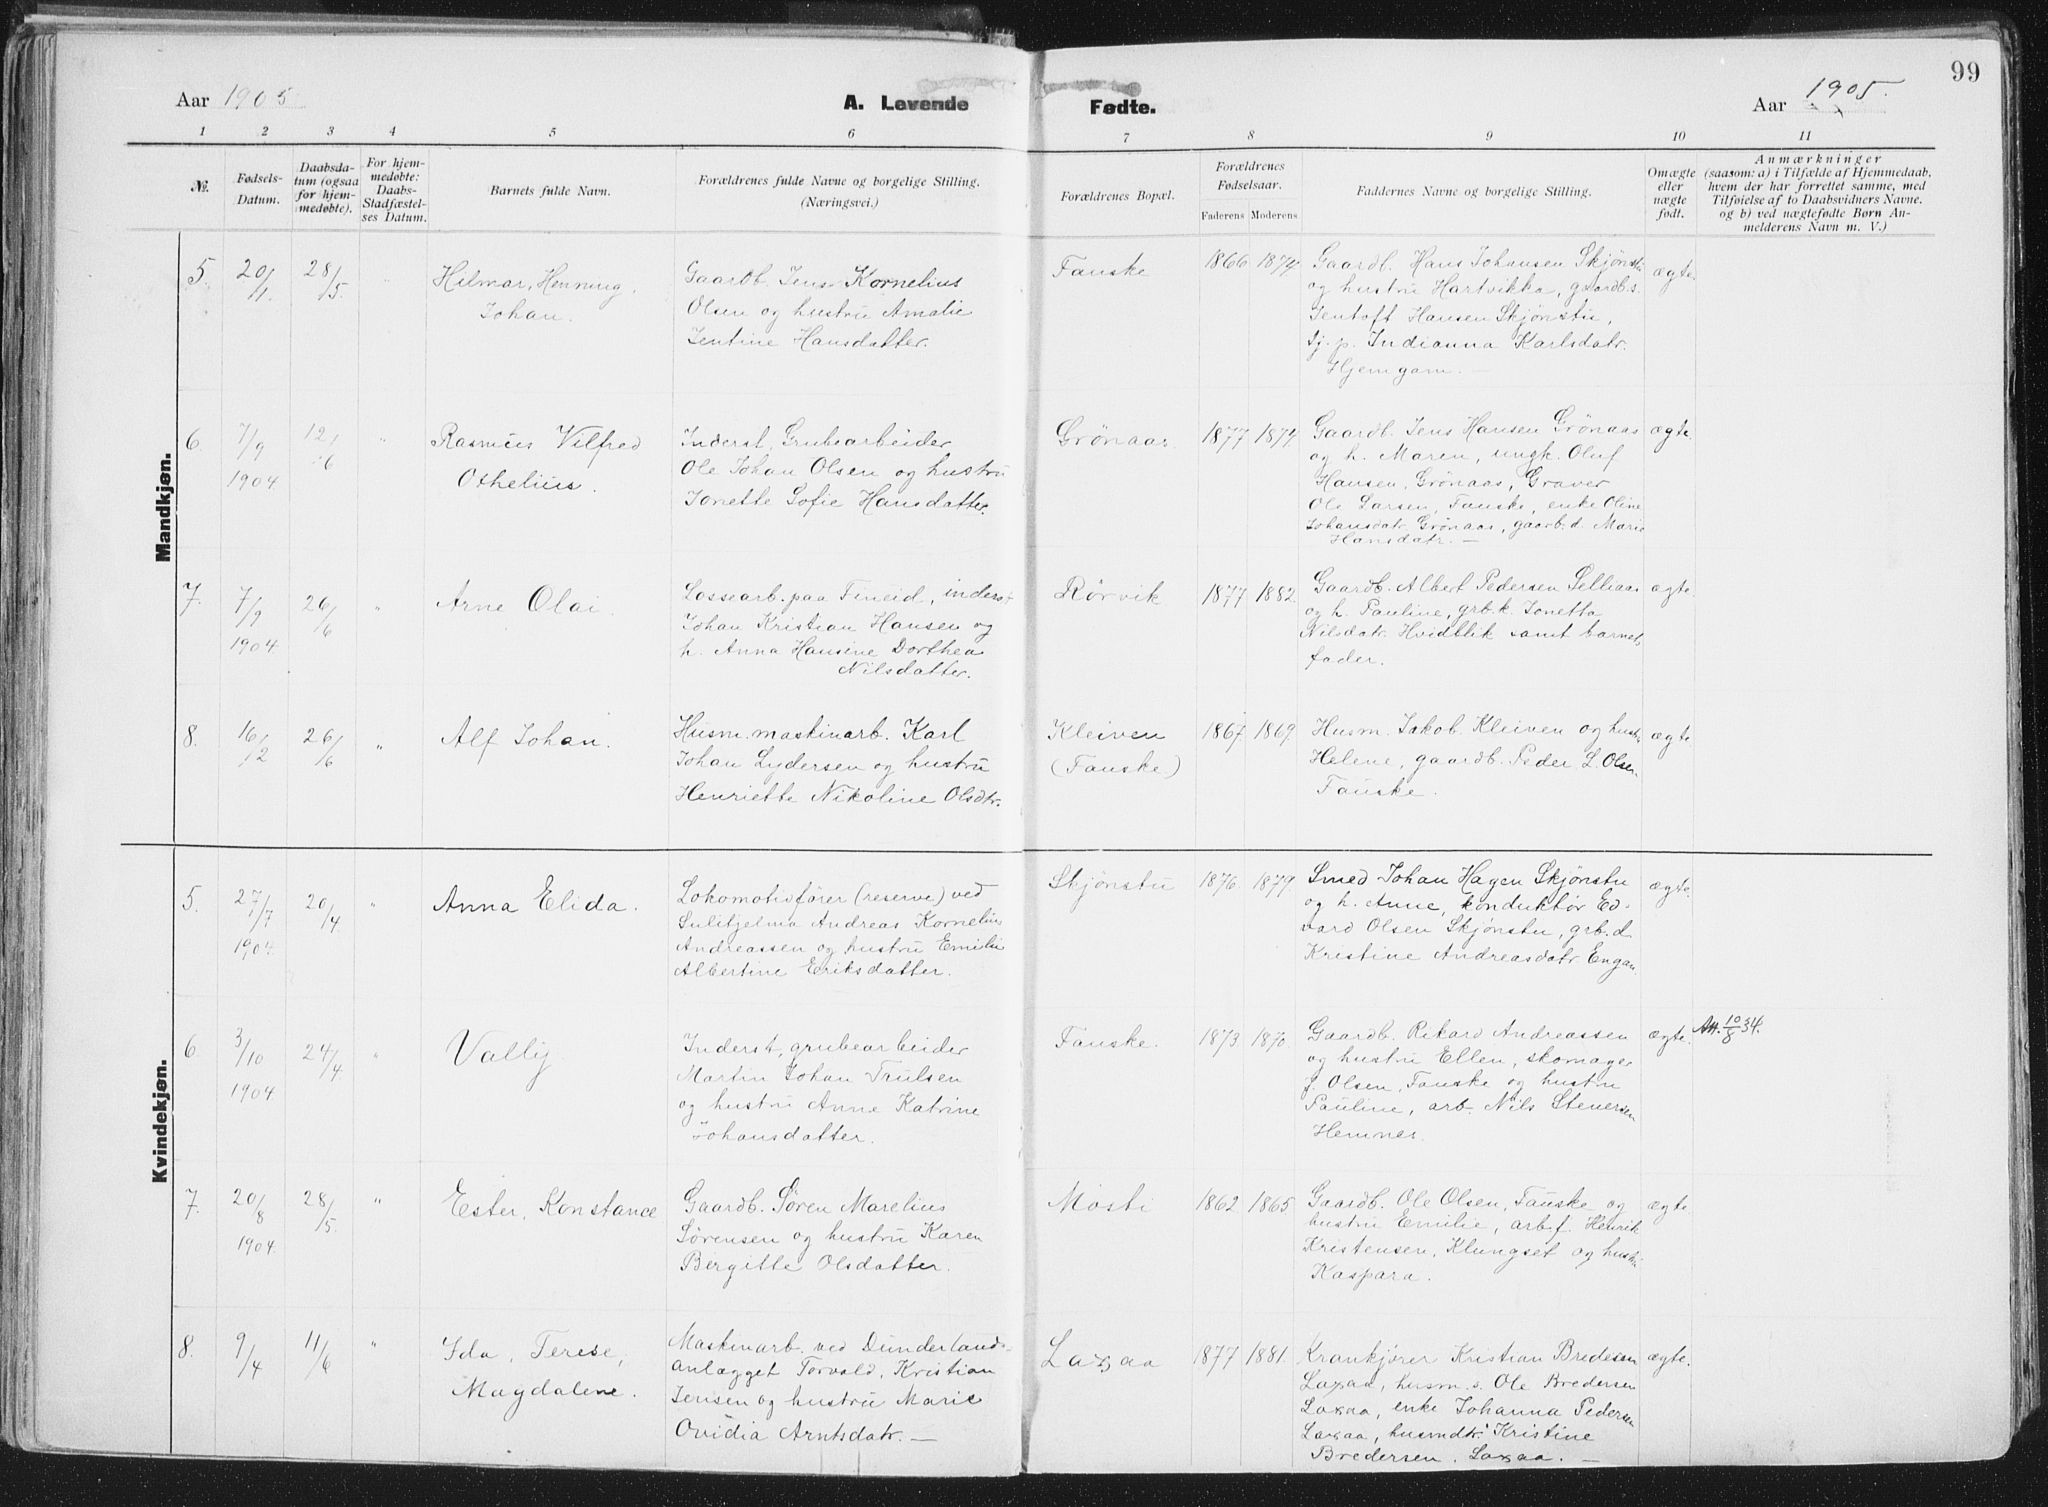 99
Aar 1905
A. Levende Fødte.
Aar 1905.
1 2 3 4 5 6 7 8 9 10 11
№.
Fødsels-
Datum.
Daabsda-
tum (ogsaa
for hjem-
medøbte).
For hjem-
medøbte:
Daabs-
Stadfæstel-
ses Datum.
Barnets fulde Navn.
Forældrenes fulde Navne og borgelige Stilling.
(Næringsvei.)
Forældrenes Bopæl.
Forældrenes
Fødselsaar.
Faderens Moderens.
Faddernes Navne og borgelige Stilling.
Omægte
eller
nægte
født.
Anmærkninger
(saasom: a) i Tilfælde af Hjemmedaab,
hvem der har forrettet samme, med
Tilføielse af to Daabsvidners Navne.
og b) ved nægtefødte Børn An-
melderens Navn m. V.)
Mandkjøn.
5. 20/4. 28/5. "
Hilmar, Henning,
Johan.
Gaardb. Jens Kornelius
Olsen og hustru Amalie
Jentine Hansdatter.
Fauske 1866 1874.
Gaardb. Hans Johansen Skjønstu
og hustru Hartvikka, gaardb.s.
Jentoft Hansen Skjønstu,
tj. p. Indianna Karlsdatr.
Hjemgam. —
ægte.
6. 7/9 1904. 12/6 "
Rasmus Vilfred
Othelius.
Inderst, Grubearbeider
Ole Johan Olsen og hustru
Jonette Sofie Hansdatter.
Grønaas. 1877 1874.
Gaardb. Jens Hansen Grønaas
og h. Maren, ungk. Oluf
Hansen, Grønaas, Graver
Ole Larsen, Fauske, enke Oline
Johansdatr. Grønaas, gaarb.d. Marie
Hansdatr. —
ægte.
7. 7/9 1904. 26/6 "
Arne Olai.
Lossearb. paa Fineid, inderst
Johan Kristian Hansen og
h. Anna Hansine Dorthea
Nilsdatter.
Rørvik 1877 1882.
Gaardb. Albert Pedersen Selliaas
og h. Pauline, grb.k. Jonetta
Nilsdatr. Hvidblik samt barnets
fader.
ægte.
8. 16/2 26/6 "
Alf Johan.
Husm. maskinarb. Karl
Johan Lydersen og hustru
Henriette Nikoline Olsdtr.
Kleiven
(Fauske)
1867. 1869.
Husm. Jakob Kleiven og hustru
Helene, gaardb. Peder L. Olsen
Fauske.
ægte
Kvindekjøn.
5. 27/7 1904. 20/4. "
Anna Elida.
Lokomotivfører (reserve) ved
Sulitjelma Andreas Kornelius
Andreassen og hustru Emilie
Albertine Eriksdatter.
Skjønstu 1876 1879.
Smed Johan Hagen Skjønstu
og h. Anne, konduktør Ed-
vard Olsen Skjønstu, grb.d.
Kristine Andreasdatr. Engan.
ægte.
6 3/10 1904 24/4. "
Vally
Inderst, grubearbeider
Martin Johan Trulsen
og hustru Anne Katrine
Johansdatter.
Fauske. 1873 1870.
Gaardb. Rikard Andreassen
og hustru Ellen, skomager
J. Olsen, Fauske og hustru
Pauline, arb. Nils Stenersen
Hemnes.
ægte.
Att. 10/8 34.
7. 20/8 1904. 28/5. "
Ester, Konstance
Gaardb. Søren Marelius
Sørensen og hustru Karen
Bergitte Olsdatter.
Mosti 1862 1865
Gaardb. Ole Olsen, Fauske og
hustru Emilie, arbf. Henrik
Kristensen, Klungset og hustru
Kaspara.
ægte
8. 9/4 11/6 "
Ida, Terese,
Magdalene.
Maskinarb. ved Dunderlands-
anlægget Torvald, Kristian
Jensen og hustru Marie
Ovidia Arntsdatr. —
Laxaa 1877 1881.
Krankjører Kristian Bredesen
Laxaa, husm. s. Ole Bredersen
Laxaa, enke Johanna Pedersen
Laxaa, husmdtr. Kristine
Bredersen, Laxaa. —
ægte.